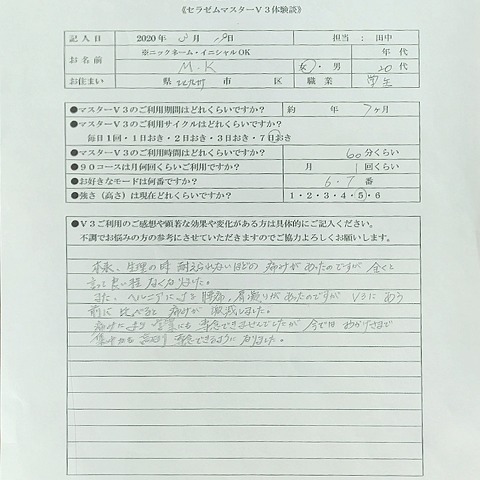 《セラゼムマスターV3体験談》
記入日 2020年 3月 日 担当 : 田中
※ニックネーム・イニシャルOK 年代
お名前 M.K 女・男 20代
お住まい 県 北九州 市 区 職業 学生
●マスターV3のご利用期間はどれくらいですか? 約 年 7ヶ月
●マスターV3のご利用サイクルはどれくらいですか?
毎日1回・1日おき・2日おき・3日おき・7日おき
●マスターV3のご利用時間はどれくらいですか? 60分くらい
●90コースは月何回くらいご利用ですか? 月 1回くらい
●お好きなモードは何番ですか? 6・7番
●強さ(高さ)は現在どれくらいですか? 1・2・3・4・5・6
●V3ご利用のご感想や顕著な効果や変化がある方は具体的にご記入ください。
不調でお悩みの方の参考にさせていただきますのでご協力よろしくお願いします。
本来、生理の時 耐えられないほどの 痛みがあったのですが 全くと
言って良い程 なくなりました。
また、ヘルニアによる 腰痛、肩凝りがあったのですが V3に あう
前に 比べると 痛みが 激減しました。
痛みにより 学業にも 専念できませんでしたが 今では おかげさまで
集中力も 高まり 専念できるように なりました。